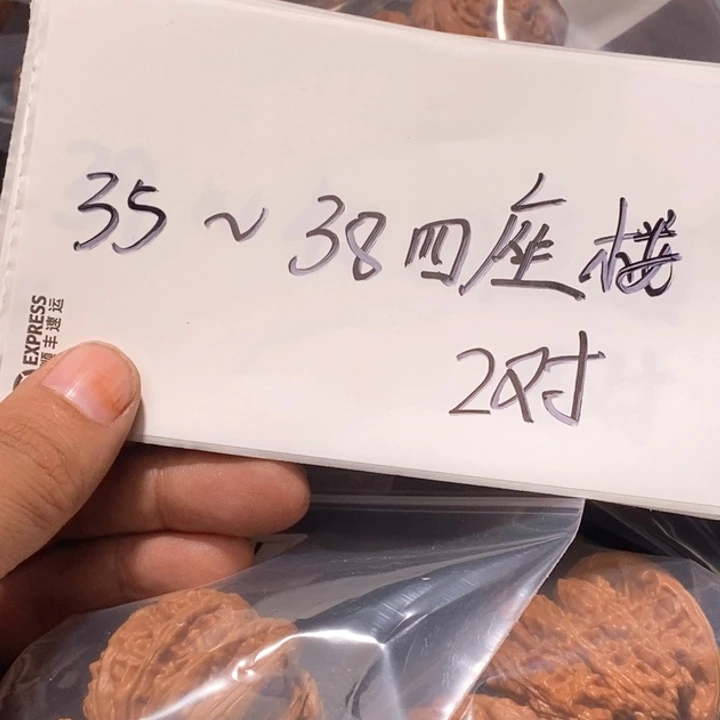 35~38四座楼
2对
EXPRESS
顺丰速运